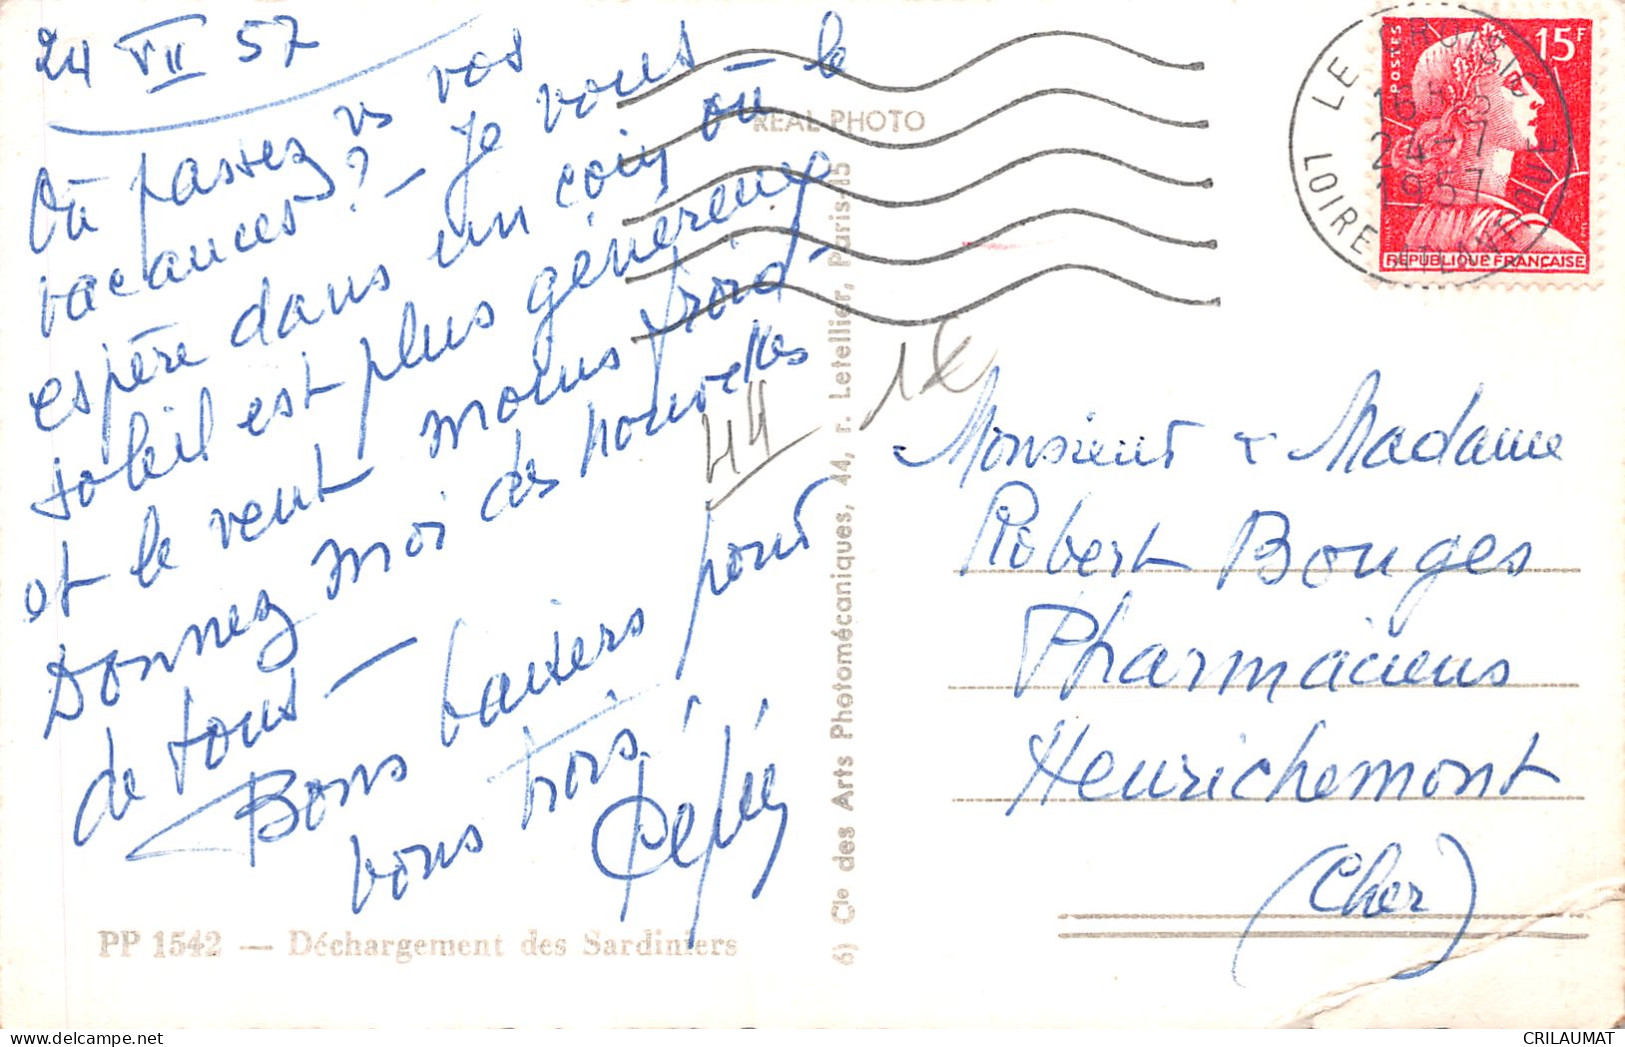 24 VII 57
Où passez vs vos
vacances ? — Je vous
espère dans un coin où le
soleil est plus généreux
et le vent moins froid —
Donnez moi des nouvelles
de tous —
Bons baisers pour
vous trois.
Pépée
PP 1542 — Déchargement des Sardiniers
REAL PHOTO
6) Cie des Arts Photomécaniques, 44, r. Letellier, Paris-15
44
1€
LE CROISIC
16H15
24-7
1957
LOIRE ATLANTIQUE
POSTES
15F
REPUBLIQUE FRANÇAISE
Monsieur & Madame
Robert Bouges
Pharmaciens
Henrichemont
(Cher)
CRILAUMAT